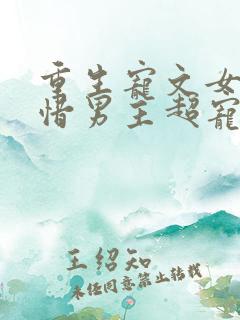 重生寵文女
惜男主超寵
王紹知
未经同意禁止转载